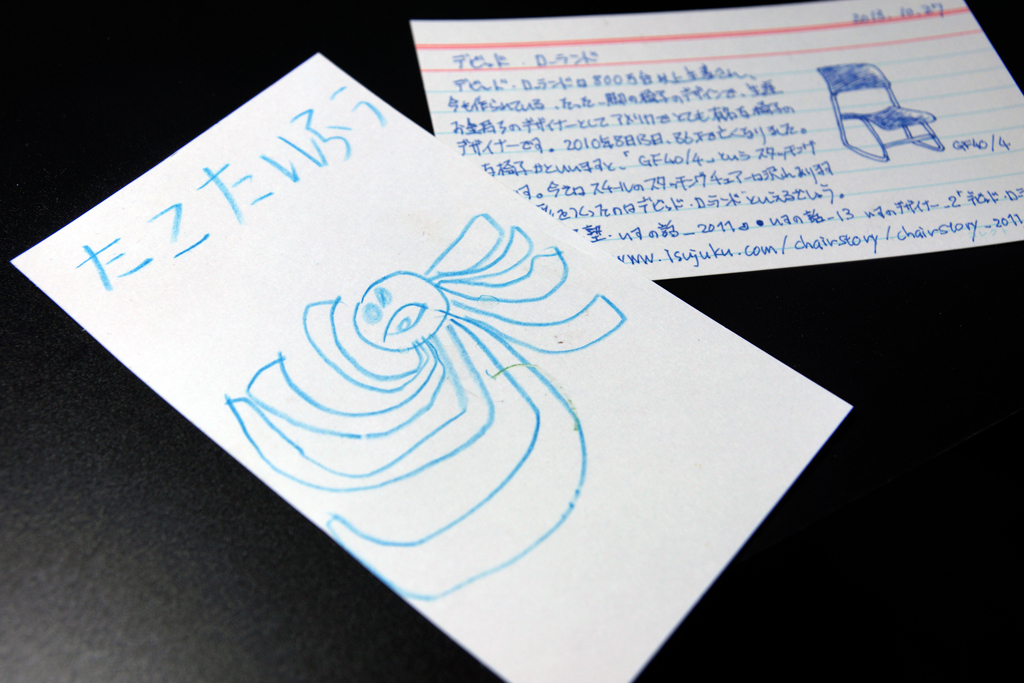 たこたいふう
2013.10.27
デビッド・ローランド
デビッド・ローランドは800万台以上生産され、
今も作られている、たった一脚の椅子のデザインで、生涯
お金持ちのデザイナーとしてアメリカでとても有名な椅子の
デザイナーです。2010年8月13日、86才で亡くなりました。
な椅子かといいますと、「GF40/4」というスタッキング
す。今では スチールのスタッキングチェアーは沢山あります
をつくったのはデビッド・ローランドといえるでしょう。
塾・いすの話_2011 ● いすの話-13 いすのデザイナー_2「デビッド・ロー
www.isujuku.com/chairstory/chairstory_2011
GF40/4